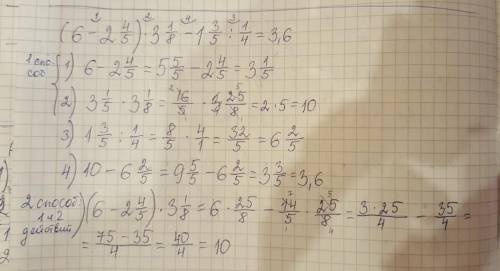 (6 - 2 4/5) · 3 1/8 - 1 3/5 : 1/4 = 3,6
1 спо-
соб
1) 6 - 2 4/5 = 5 5/5 - 2 4/5 = 3 1/5
2) 3 1/5 · 3 1/8 = 16/5 · 25/8 = 2 · 5 = 10
3) 1 3/5 : 1/4 = 8/5 · 4/1 = 32/5 = 6 2/5
4) 10 - 6 2/5 = 9 5/5 - 6 2/5 = 3 3/5 = 3,6
2 способ
1 и 2
действий
(6 - 2 4/5) · 3 1/8 = 6 · 25/8 - 14/5 · 25/8 = 3 · 25/4 - 35/4 =
= 75 - 35/4 = 40/4 = 10